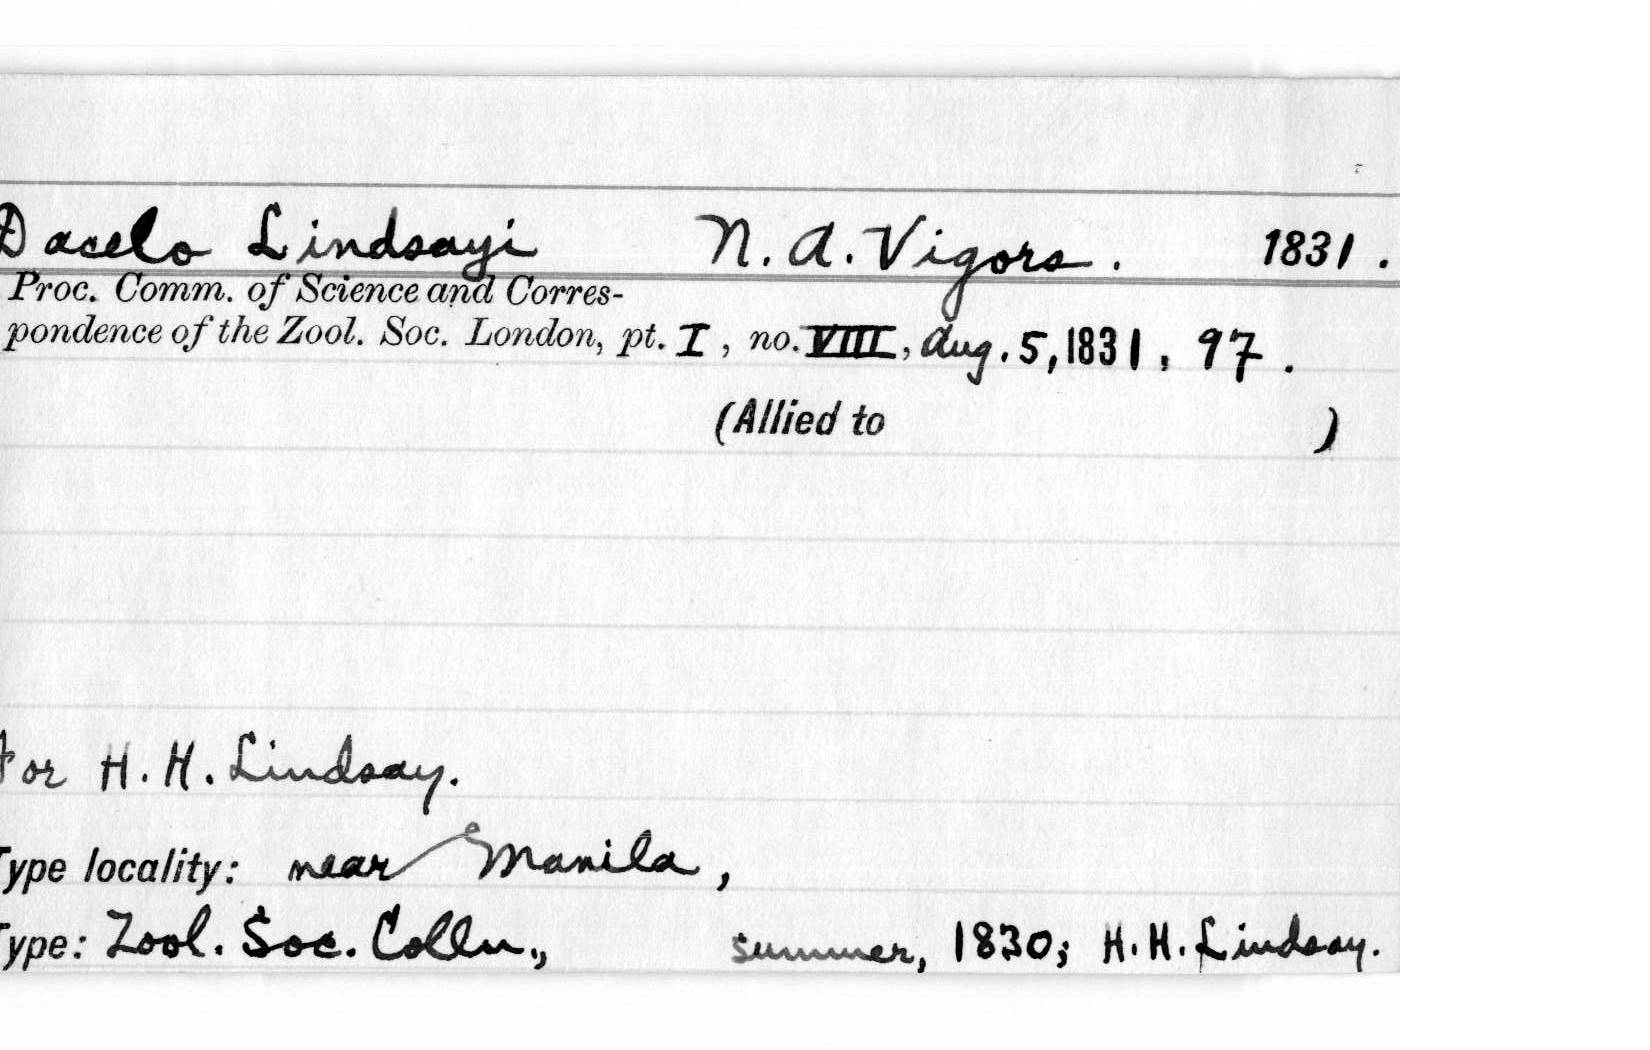 Dacelo Lindsayi N. A. Vigors. 1831.
Proc. Comm. of Science and Corres-
pondence of the Zool. Soc. London, pt. I, no. VIII, Aug. 5, 1831, 97.
(Allied to )
For H. H. Lindsay.
Type locality: near Manila,
Type: Zool. Soc. Colln., summer, 1830; H. H. Lindsay.